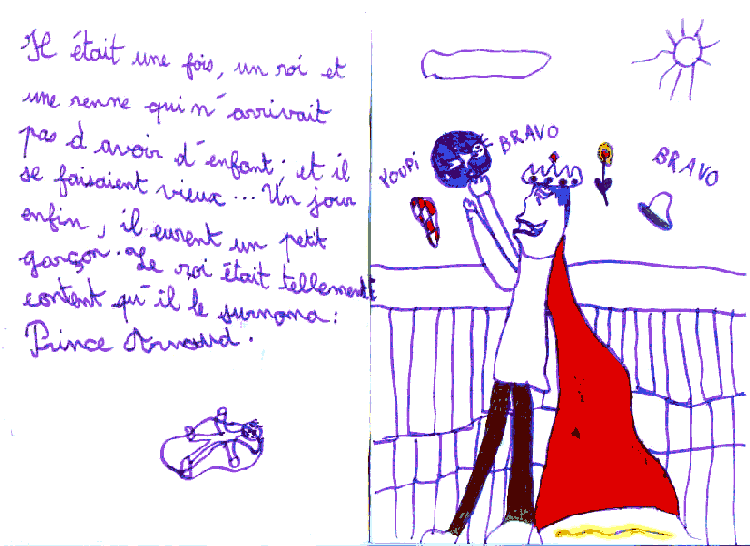 Il était une fois, un roi et
une renne qui n'arrivait
pas d'avoir d'enfant; et il
se faisaient vieux... Un jour
enfin, il eurent un petit
garçon. Le roi était tellement
content qu'il le surnoma:
Prince Arnaud.
YOUPi
BRAVO
BRAVO